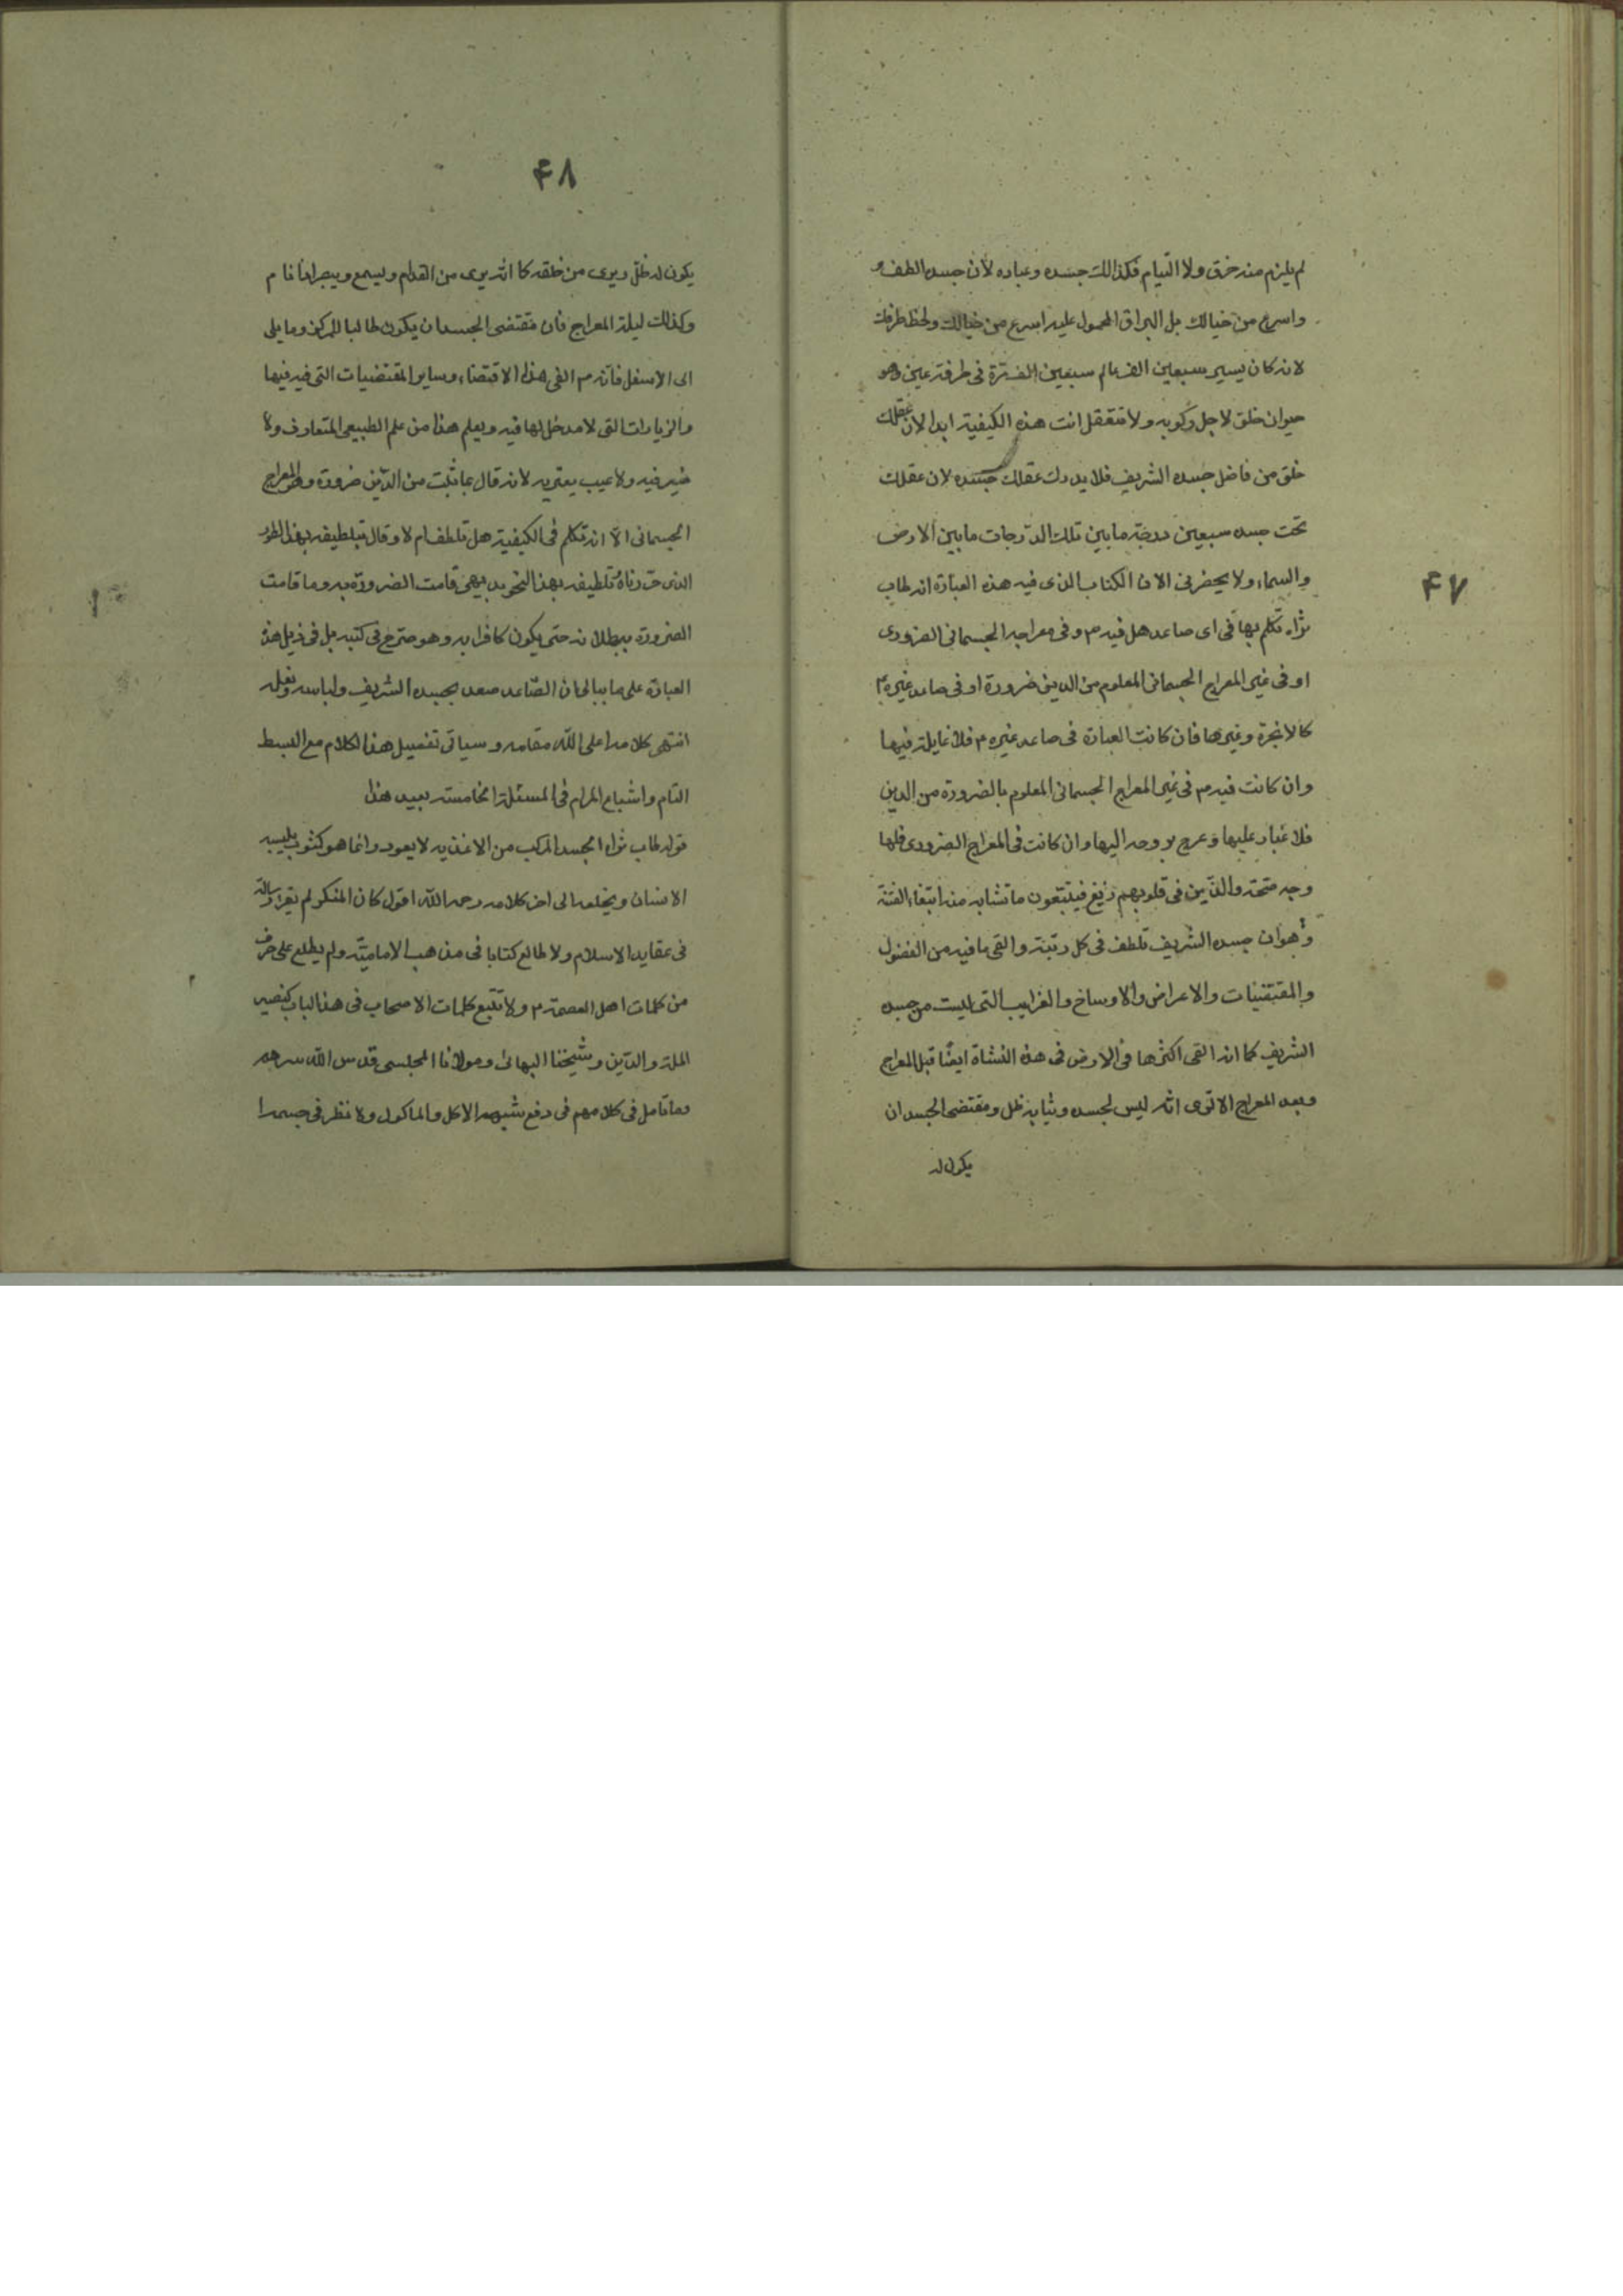 ۴۷
لم يلزم منه خرق ولا التيام فكذالك جسده وعباده لأن جسده الطف و
واسرع من خيالك بل البراق المحمول عليه اسرع من خيالك ولحظ طرفك
لانه كان يسير سبعين الف عالم سبعين الف مرة فى طرفة عين وهو
حيوان خلق لاجل ركوبه ولا تتعقل انت هذه الكيفية ابدا لان عقلك
خلق من فاضل جسده الشريف فلا يدرك عقلك جسده لان عقلك
تحت جسده سبعين درجة ما بين تلك الدرجات ما بين الارض
والسماء ولا يحضرنى الان الكتاب الذى فيه هذه العبارة انه طاب
ثراه تكلم بها فى اى صاعد هل فيه م وفى معراجه الجسمانى الضرورى
او فى غير المعراج الجسمانى المعلوم من الدين ضرورة او فى صاعد غيره م
كالابخرة وغيرها فان كانت العبارة فى صاعد غيره م فلا غايلة فيها
وان كانت فيه م فى غير المعراج الجسمانى المعلوم بالضرورة من الدين
فلا غبار عليها وعرج بروحه اليها وان كانت فى المعراج الضرورى فلها
وجه متجه والذين فى قلوبهم زيغ فيتبعون ما تشابه منه ابتغاء الفتنة
وهو ان جسده الشريف تلطف فى كل رتبة والقى ما فيه من الفضول
والمقتضيات والاعراض والاوساخ والغرايب التى ليست من جسده
الشريف كما انه القى اكثرها فى الارض فى هذه النشاة ايضًا قبل المعراج
وبعد المعراج الا ترى انه ليس لجسده وثيابه ظل ومقتضى الجسد ان
يكون له
۴۸
يكون له ظل ويرى من خلفه كما انه يرى من القدام ويسمع ويبصر اذا نام
وكذالك ليلة المعراج فان مقتضى الجسد ان يكون طالبا للمركز وما يلى
الى الاسفل فانه م القى هذا الاقتضاء وساير المقتضيات التى فيها
والزيادات التى لا مدخل لها فيه ويعلم هذا من علم الطبيعى المتعارف ولا
ضير فيه ولا عيب يعتريه لانه قال بما ثبت من الدين ضرورة وهو المعراج
الجسمانى الا انه تكلم فى الكيفية هل تلطف ام لا وقال بتلطيفه بهذا الطور
الذى حررناه تلطيفه بهذا النحو بديهى قامت الضرورة به وما قامت
الضرورة ببطلانه حتى يكون كافرا به وهو صرح فى كتبه بل فى ذيل هذه
العبارة على ما ببالى ان الصاعد صعد بجسده الشريف ولباسه ونعله
انتهى كلامه اعلى الله مقامه وسياتى تفصيل هذا الكلام مع البسط
التام واشباع المرام فى المسئلة الخامسة بعيد هذا
قوله طاب ثراه الجسد المركب من الاغذيه لا يعود وانما هو كثوب يلبسه
الانسان ويخلعه الى اخر كلامه رحمه الله اقول كان المنكر لم يقرا رسالة
فى عقايد الاسلام ولا طالع كتابا فى مذهب الامامية ولم يطلع على حرف
من كلمات اهل العصمة م ولا تتبع كلمات الاصحاب فى هذا الباب كنصير
الملة والدين وشيخنا البهائى ومولانا المجلسى قدس الله سرهم
وما تامل فى كلامهم فى دفع شبهة الاكل والماكول ولا نظر فى جسمه